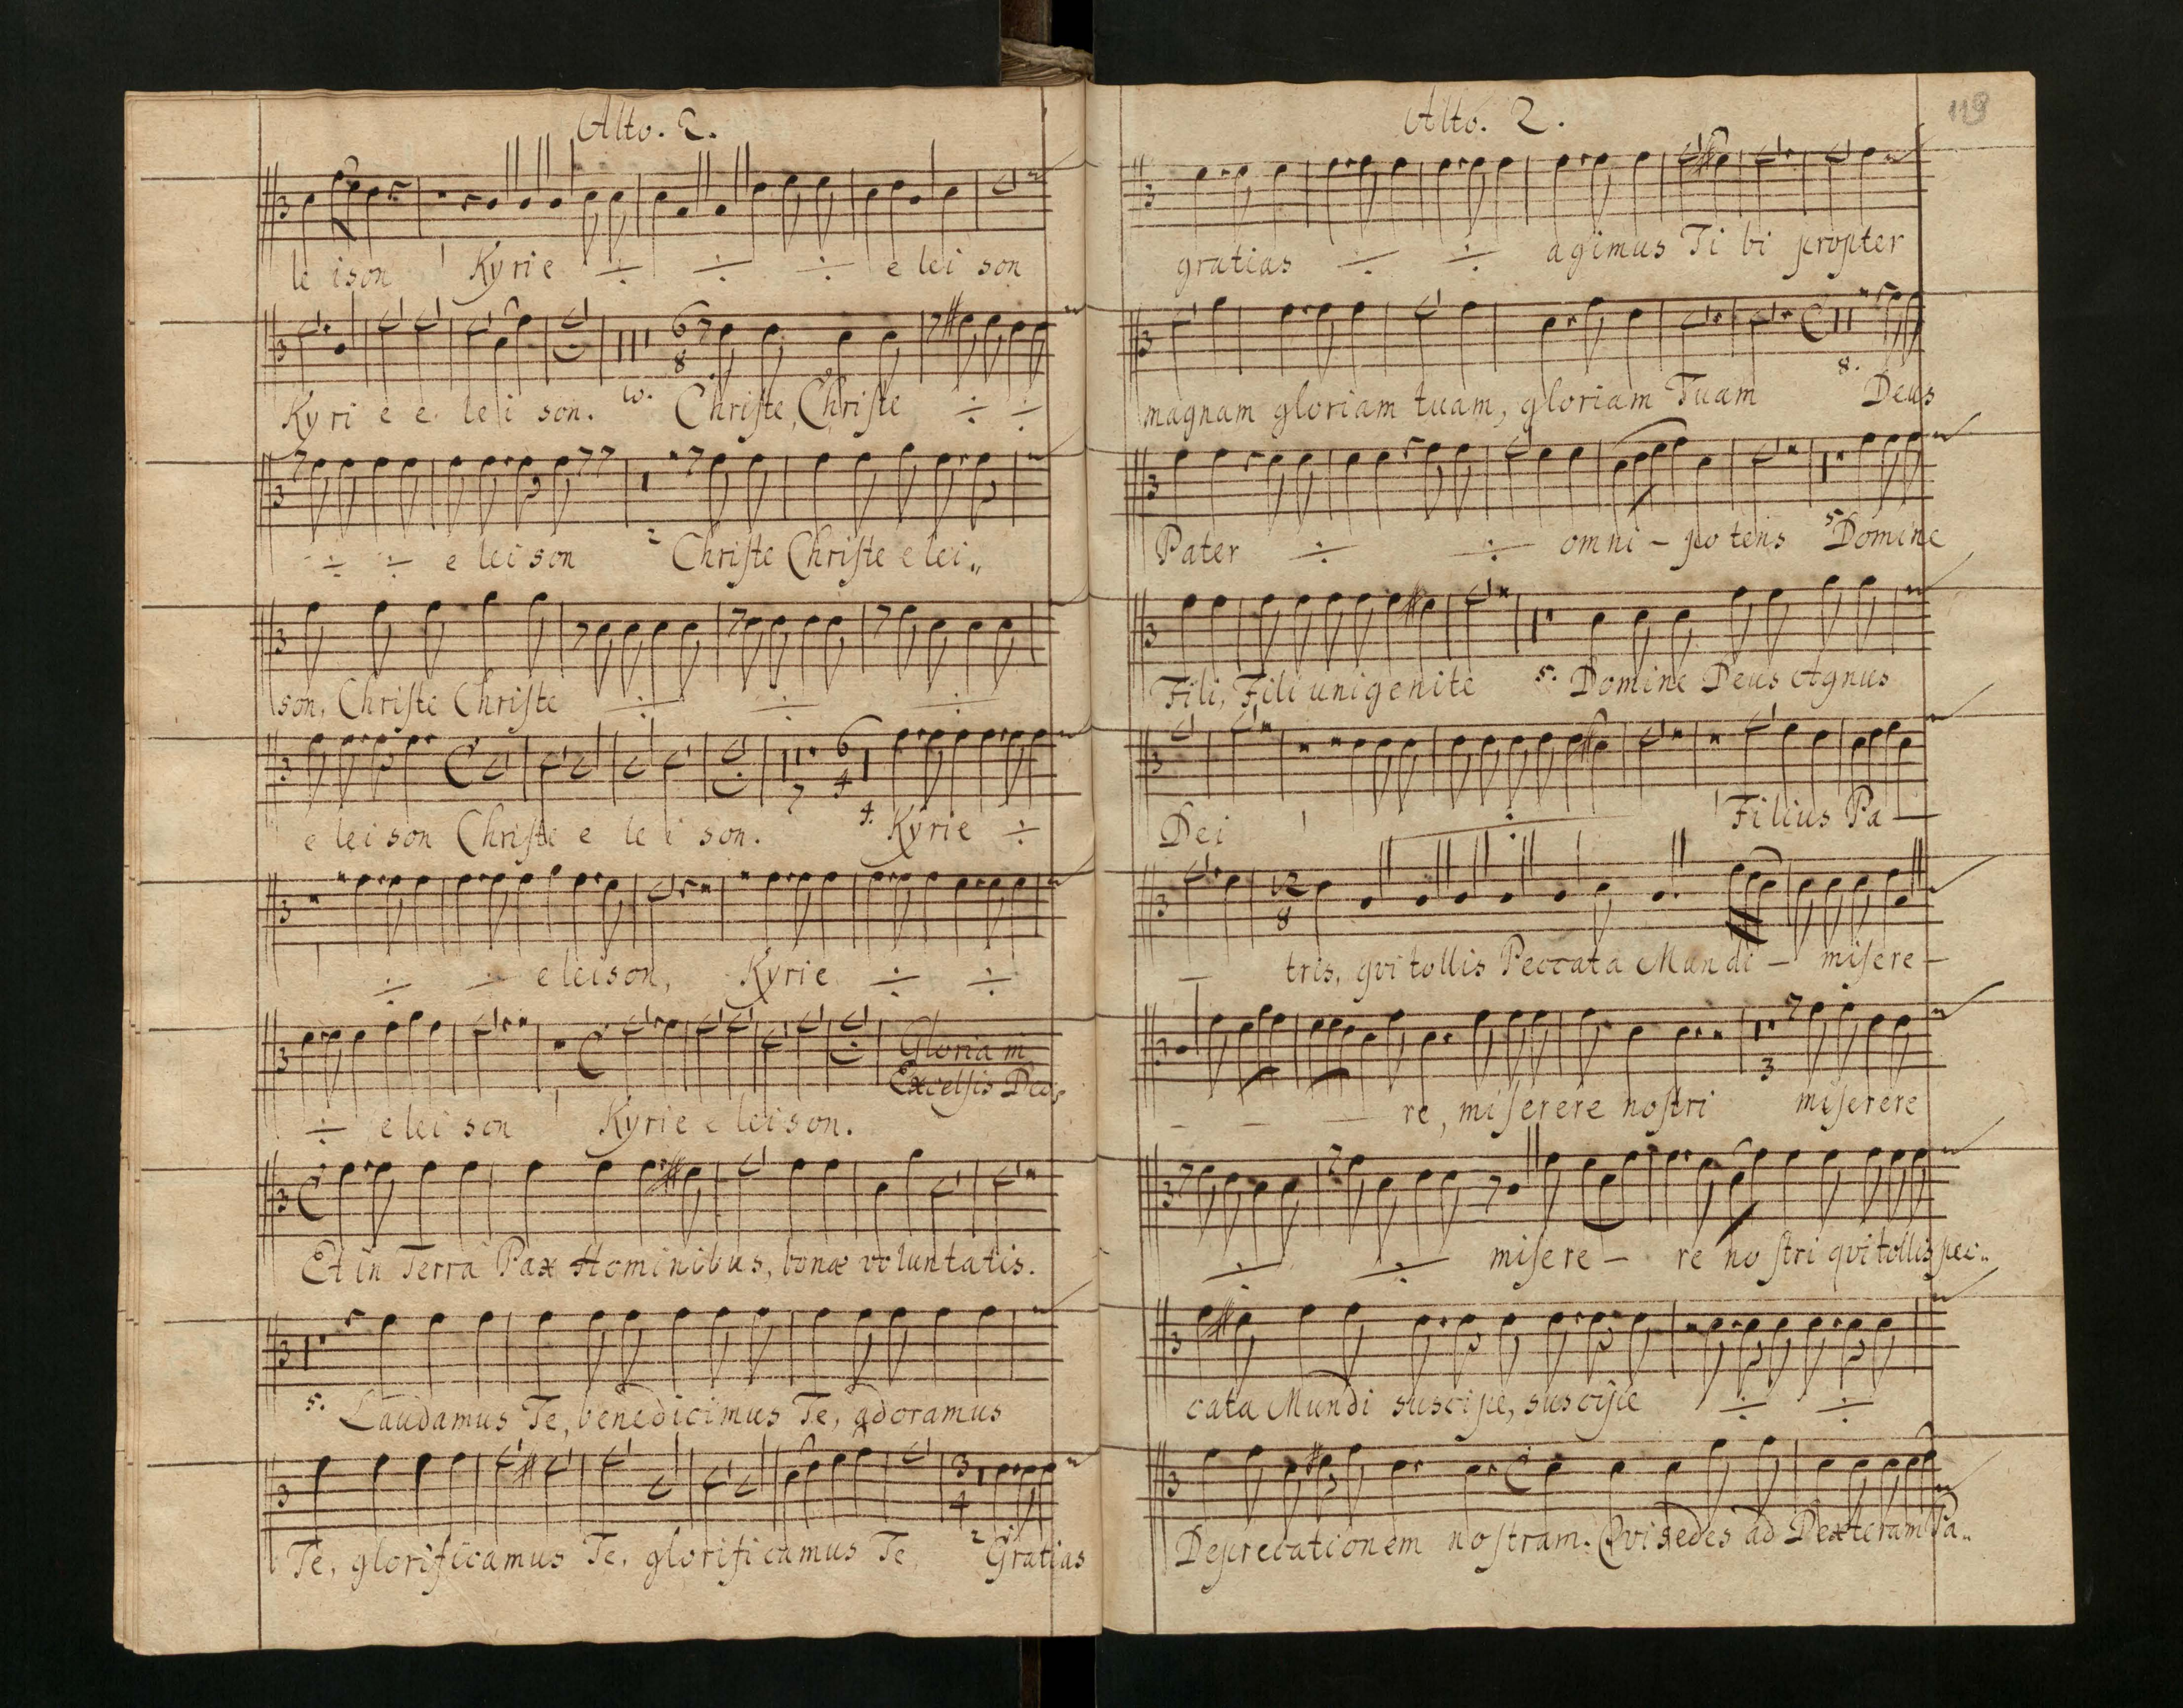 Alto. 2.
le ison Kyrie ÷ ÷ ÷ e lei son
Kyri e e le i son. Christe, Christe ÷ ÷
6
8
÷ ÷ e lei son 2 Christe Christe e lei„
son, Christe Christe ÷ ÷ ÷
7 6
4
e lei son Christe e le i son. 4. Kyrie ÷
÷ ÷ eleison, Kyrie ÷ ÷
Gloria in
Excelsis Deo,
÷ e lei son Kyrie e leison.
Et in Terra Pax Hominibus, bonæ voluntatis.
5. Laudamus Te, benedicimus Te, adoramus
3
4
Te, glorificamus Te, glorificamus Te, 2 Gratias
Alto. 2.
119
gratias ÷ ÷ agimus Ti bi propter
8.
magnam gloriam tuam, gloriam Tuam Deus
Pater ÷ ÷ omni – po tens 5 Domine
Fili, Fili unigenite 5. Domine Deus Agnus
Dei ÷ Filius Pa –
12
8
– tris, qvi tollis Peccata Mundi – misere –
3
– – – re, miserere nostri miserere
÷ ÷ misere – re nostri qvi tollis pec„
cata Mundi suscipe, suscipe ÷ ÷
Deprecationem nostram. Qvi sedes ad Dexteram Pa„